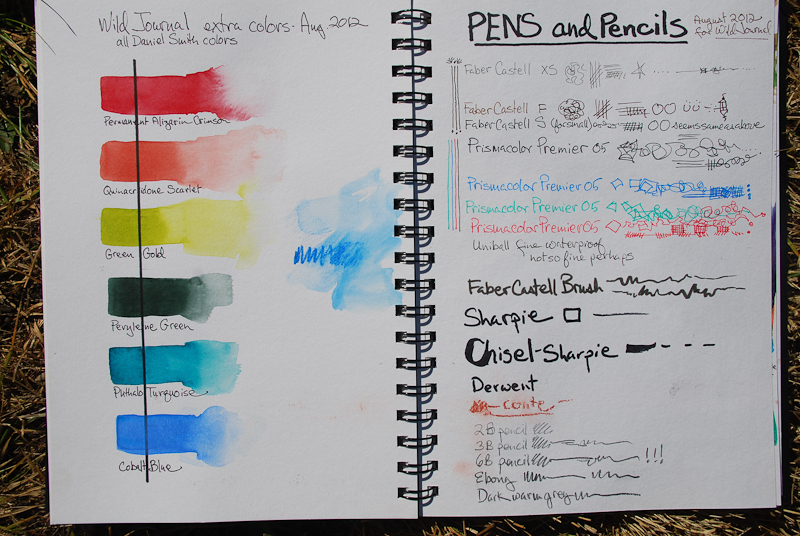 Wild Journal extra colors. Aug 2012
all Daniel Smith colors
Permanent Alizarin Crimson
Quinacridone Scarlet
Green Gold
Perylene Green
Phthalo Turquoise
Cobalt Blue
PENS and Pencils
August 2012
for Wild Journal
Faber Castell XS
Faber Castell F
Faber Castell S (for small) seems same as above
Prismacolor Premier 05
Prismacolor Premier 05
Prismacolor Premier 05
Prismacolor Premier 05
Uniball fine waterproof
not so fine perhaps
Faber Castell Brush
Sharpie
Chisel-Sharpie
Derwent
Conte
2B pencil
3B pencil
6B pencil !!!
Ebony
Dark warm grey